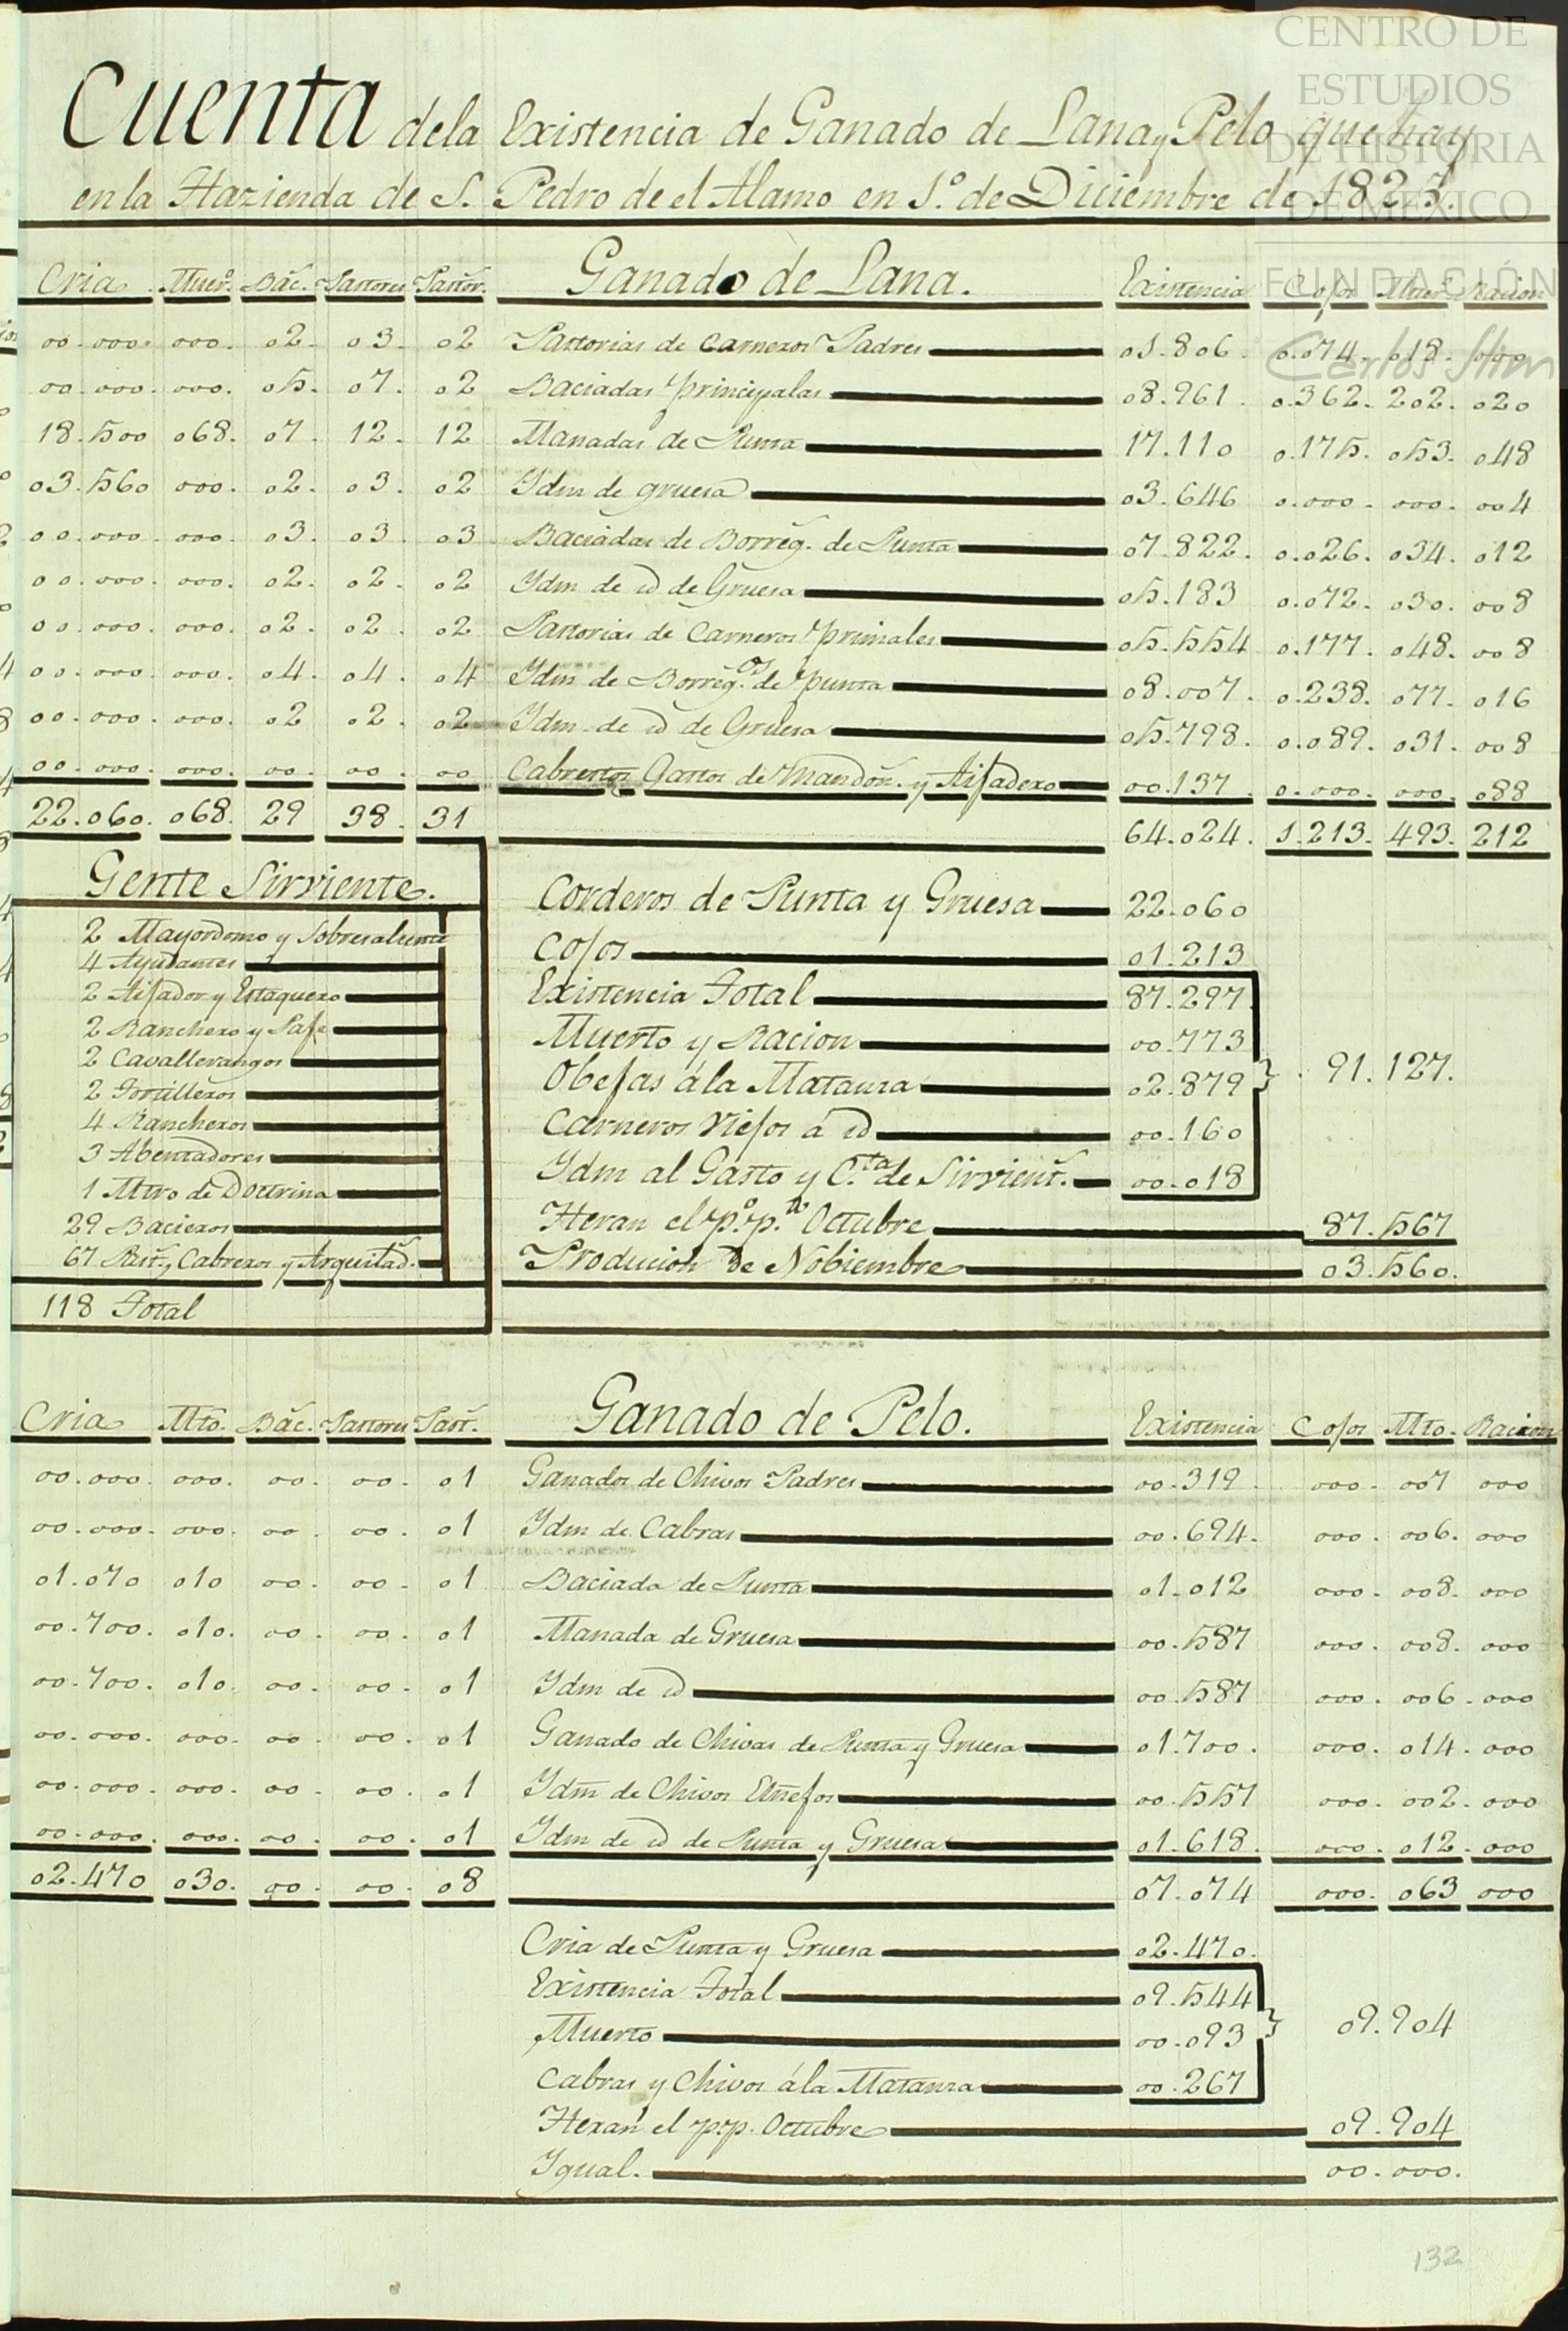 CENTRO DE
ESTUDIOS
DE HISTORIA
DE MEXICO
FUNDACIÓN
Carlos Slim
Cuenta dela Existencia de Ganado de Lana y Pelo que hay
en la Hazienda de S. Pedro de el Alamo en 1.º de Diciembre de 1823.
Cria Muer.º Bác. Pastores Pastor.s Ganado de Lana. Existencia Cojos Muer.º Racion
00.000. 000. 02. 03. 02 Pastorias de Carneros Padres 01.806. 0.074. 018. 000
00.000. 000. 05. 07. 02 Baciadas principales 08.961. 0.362. 202. 020
18.500 068. 07. 12. 12 Manadas de Punta 17.110 0.175. 053. 048
03.560 000. 02. 03. 02 Ydm de gruesa 03.646 0.000. 000. 004
00.000. 000. 03. 03. 03 Baciadas de Borreg.s de Punta 07.822. 0.026. 034. 012
00.000. 000. 02. 02. 02 Ydm de id de Gruesa 05.183 0.072. 030. 008
00.000. 000. 02. 02. 02 Pastorias de Carneros primales 05.554 0.177. 048. 008
00.000. 000. 04. 04. 04 Ydm de Borreg.os de punta 08.007. 0.238. 077. 016
00.000. 000. 02 02. 02 Ydm de id de Gruesa 05.798. 0.089. 031. 008
00.000. 000. 00. 00. 00 Cabrestos Gastos de Mandón.s y Aijadero 00.137 0.000. 000. 088
22.060. 068. 29 38. 31 64.024. 1.213. 493. 212
Gente Sirviente.
2 Mayordomo y Sobresaliente
4 Ayudantes
2 Aijador y Estaquero
2 Ranchero y Safe
2 Cavallerangos
2 Tortilleros
4 Rancheros
3 Abentadores
1 Mtro de Doctrina
29 Bacieros
67 Past.s, Cabreros y Arquitad.s
118 Total
Corderos de Punta y Gruesa 22.060
Cojos 01.213
Existencia Total 87.297
Muerto y Racion 00.773
Obejas á la Matanza 02.879 91.127.
Carneros Viejos á id 00.160
Ydm al Gasto y C.ta de Sirvient.s 00.018
Heran el p.º p.do Octubre 87.567
Producion de Nobiembre 03.560.
Cria Mto. Bác. Pastores Past.s Ganado de Pelo. Existencia Cojos Mto. Racion
00.000. 000. 00. 00. 01 Ganados de Chivos Padres 00.319. 000. 007 000
00.000. 000. 00. 00. 01 Ydm de Cabras 00.694. 000. 006. 000
01.070 010 00. 00. 01 Baciada de Punta 01.012 000. 008. 000
00.700. 010. 00. 00. 01 Manada de Gruesa 00.587 000. 008. 000
00.700. 010. 00. 00. 01 Ydm de id 00.587 000. 006. 000
00.000. 000. 00. 00. 01 Ganado de Chivas de Punta y Gruesa 01.700. 000. 014. 000
00.000. 000. 00. 00. 01 Ydm de Chivos Eñejos 00.557 000. 002. 000
00.000. 000. 00. 00. 01 Ydm de id de Punta y Gruesa 01.618. 000. 012. 000
02.470 030. 00. 00. 08 07.074 000. 063 000
Cria de Punta y Gruesa 02.470.
Existencia Total 09.544
Muerto 00.093 09.904
Cabras y Chivos á la Matanza 00.267
Heran el p.p. Octubre 09.904
Ygual. 00.000.
132